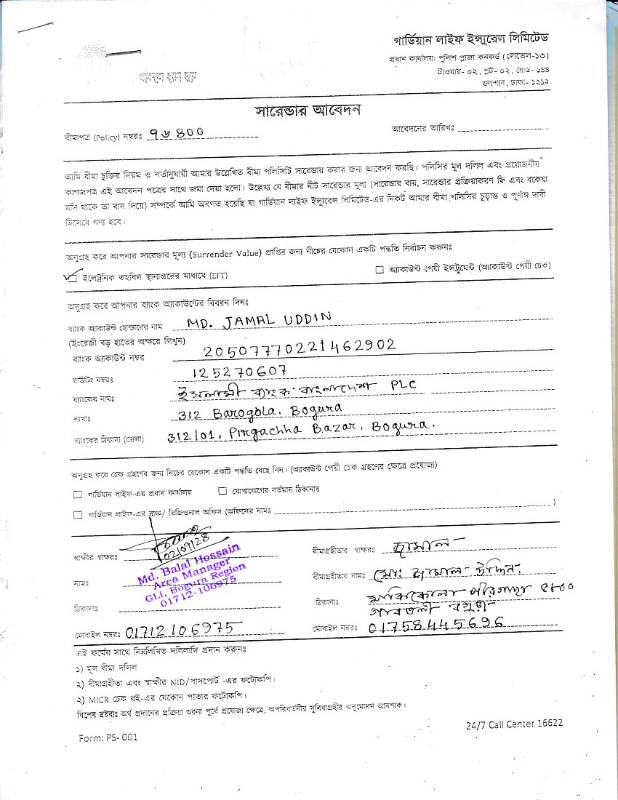 গার্ডিয়ান লাইফ ইন্স্যুরেন্স লিমিটেড
প্রধান কার্যালয়: পুলিশ প্লাজা কনকর্ড (লেভেল-১৩)
টাওয়ার- ০২, প্লট- ০২, রোড- ১৪৪
গুলশান, ঢাকা- ১২১২
সারেন্ডার আবেদন
বীমাপত্র (Policy) নম্বরঃ ৭৬৪০০ আবেদনের তারিখঃ
আমি বীমা চুক্তির নিয়ম ও শর্তানুযায়ী আমার উল্লেখিত বীমা পলিসিটি সারেন্ডার করার জন্য আবেদন করছি। পলিসির মূল দলিল এবং প্রয়োজনীয়
কাগজপত্র এই আবেদন পত্রের সাথে জমা দেয়া হলো। উল্লেখ্য যে বীমার নীট সারেন্ডার মূল্য (সারেন্ডার ব্যয়, সারেন্ডার প্রক্রিয়াকরণ ফি এবং বকেয়া
যদি থাকে তা বাদ দিয়ে) সম্পর্কে আমি অবগত হয়েছি যা গার্ডিয়ান লাইফ ইন্স্যুরেন্স লিমিটেড-এর নিকট আমার বীমা পলিসির চূড়ান্ত ও পূর্ণাঙ্গ দাবী
হিসেবে গণ্য হবে।
অনুগ্রহ করে আপনার সারেন্ডার মূল্য (Surrender Value) প্রাপ্তির জন্য নীচের যেকোন একটি পদ্ধতি নির্বাচন করুনঃ
ইলেকট্রনিক তহবিল স্থানান্তরের মাধ্যমে (EFT) অ্যাকাউন্ট পেয়ী ইন্সট্রুমেন্ট (অ্যাকাউন্ট পেয়ী চেক)
অনুগ্রহ করে আপনার ব্যাংক অ্যাকাউন্টের বিবরন দিনঃ
ব্যাংক অ্যাকাউন্ট হোল্ডারের নাম MD. JAMAL UDDIN
(ইংরেজী বড় হাতের অক্ষরে লিখুন)
ব্যাংক অ্যাকাউন্ট নম্বর 20507770221462902
রাউটিং নম্বরঃ 125270607
ব্যাংকের নাম: ইসলামী ব্যাংক বাংলাদেশ PLC
শাখাঃ 312 Barogola, Bogura
ব্যাংকের ঠিকানা (জেলা) 312/01, Pirgachha Bazar, Bogura.
অনুগ্রহ করে চেক গ্রহণের জন্য নিচের যেকোন একটি পদ্ধতি বেছে নিন। (অ্যাকাউন্ট পেয়ী চেক গ্রহণের ক্ষেত্রে প্রযোজ্য)
গার্ডিয়ান লাইফ-এর প্রধান কার্যালয় যোগাযোগের বর্তমান ঠিকানায়
গার্ডিয়ান লাইফ-এর শাখা/ রিজিওনাল অফিস (অফিসের নামঃ )
স্বাক্ষীর স্বাক্ষরঃ বীমাগ্রহীতার স্বাক্ষরঃ জামাল
Md. Balal Hossain
Area Manager
GLI, Bogura Region
01712-106975
নামঃ বীমাগ্রহীতার নামঃ মোঃ জামাল উদ্দিন
ঠিকানাঃ ঠিকানাঃ
মোবাইল নম্বরঃ 01712106975 মোবাইল নম্বরঃ 01758445696
এই ফর্মের সাথে নিম্নলিখিত দলিলাদি প্রদান করুনঃ
১) মূল বীমা দলিল
২) বীমাগ্রহীতা এবং স্বাক্ষীর NID/পাসপোর্ট -এর ফটোকপি।
২) MICR চেক বই-এর যেকোন পাতার ফটোকপি।
বিশেষ দ্রষ্টব্যঃ অর্থ প্রদানের প্রক্রিয়া শুরুর পূর্বে প্রযোজ্য ক্ষেত্রে, অপরিবর্তনীয় সুবিধাগ্রহীর অনুমোদন আবশ্যক।
24/7 Call Center 16622
Form: PS- 001